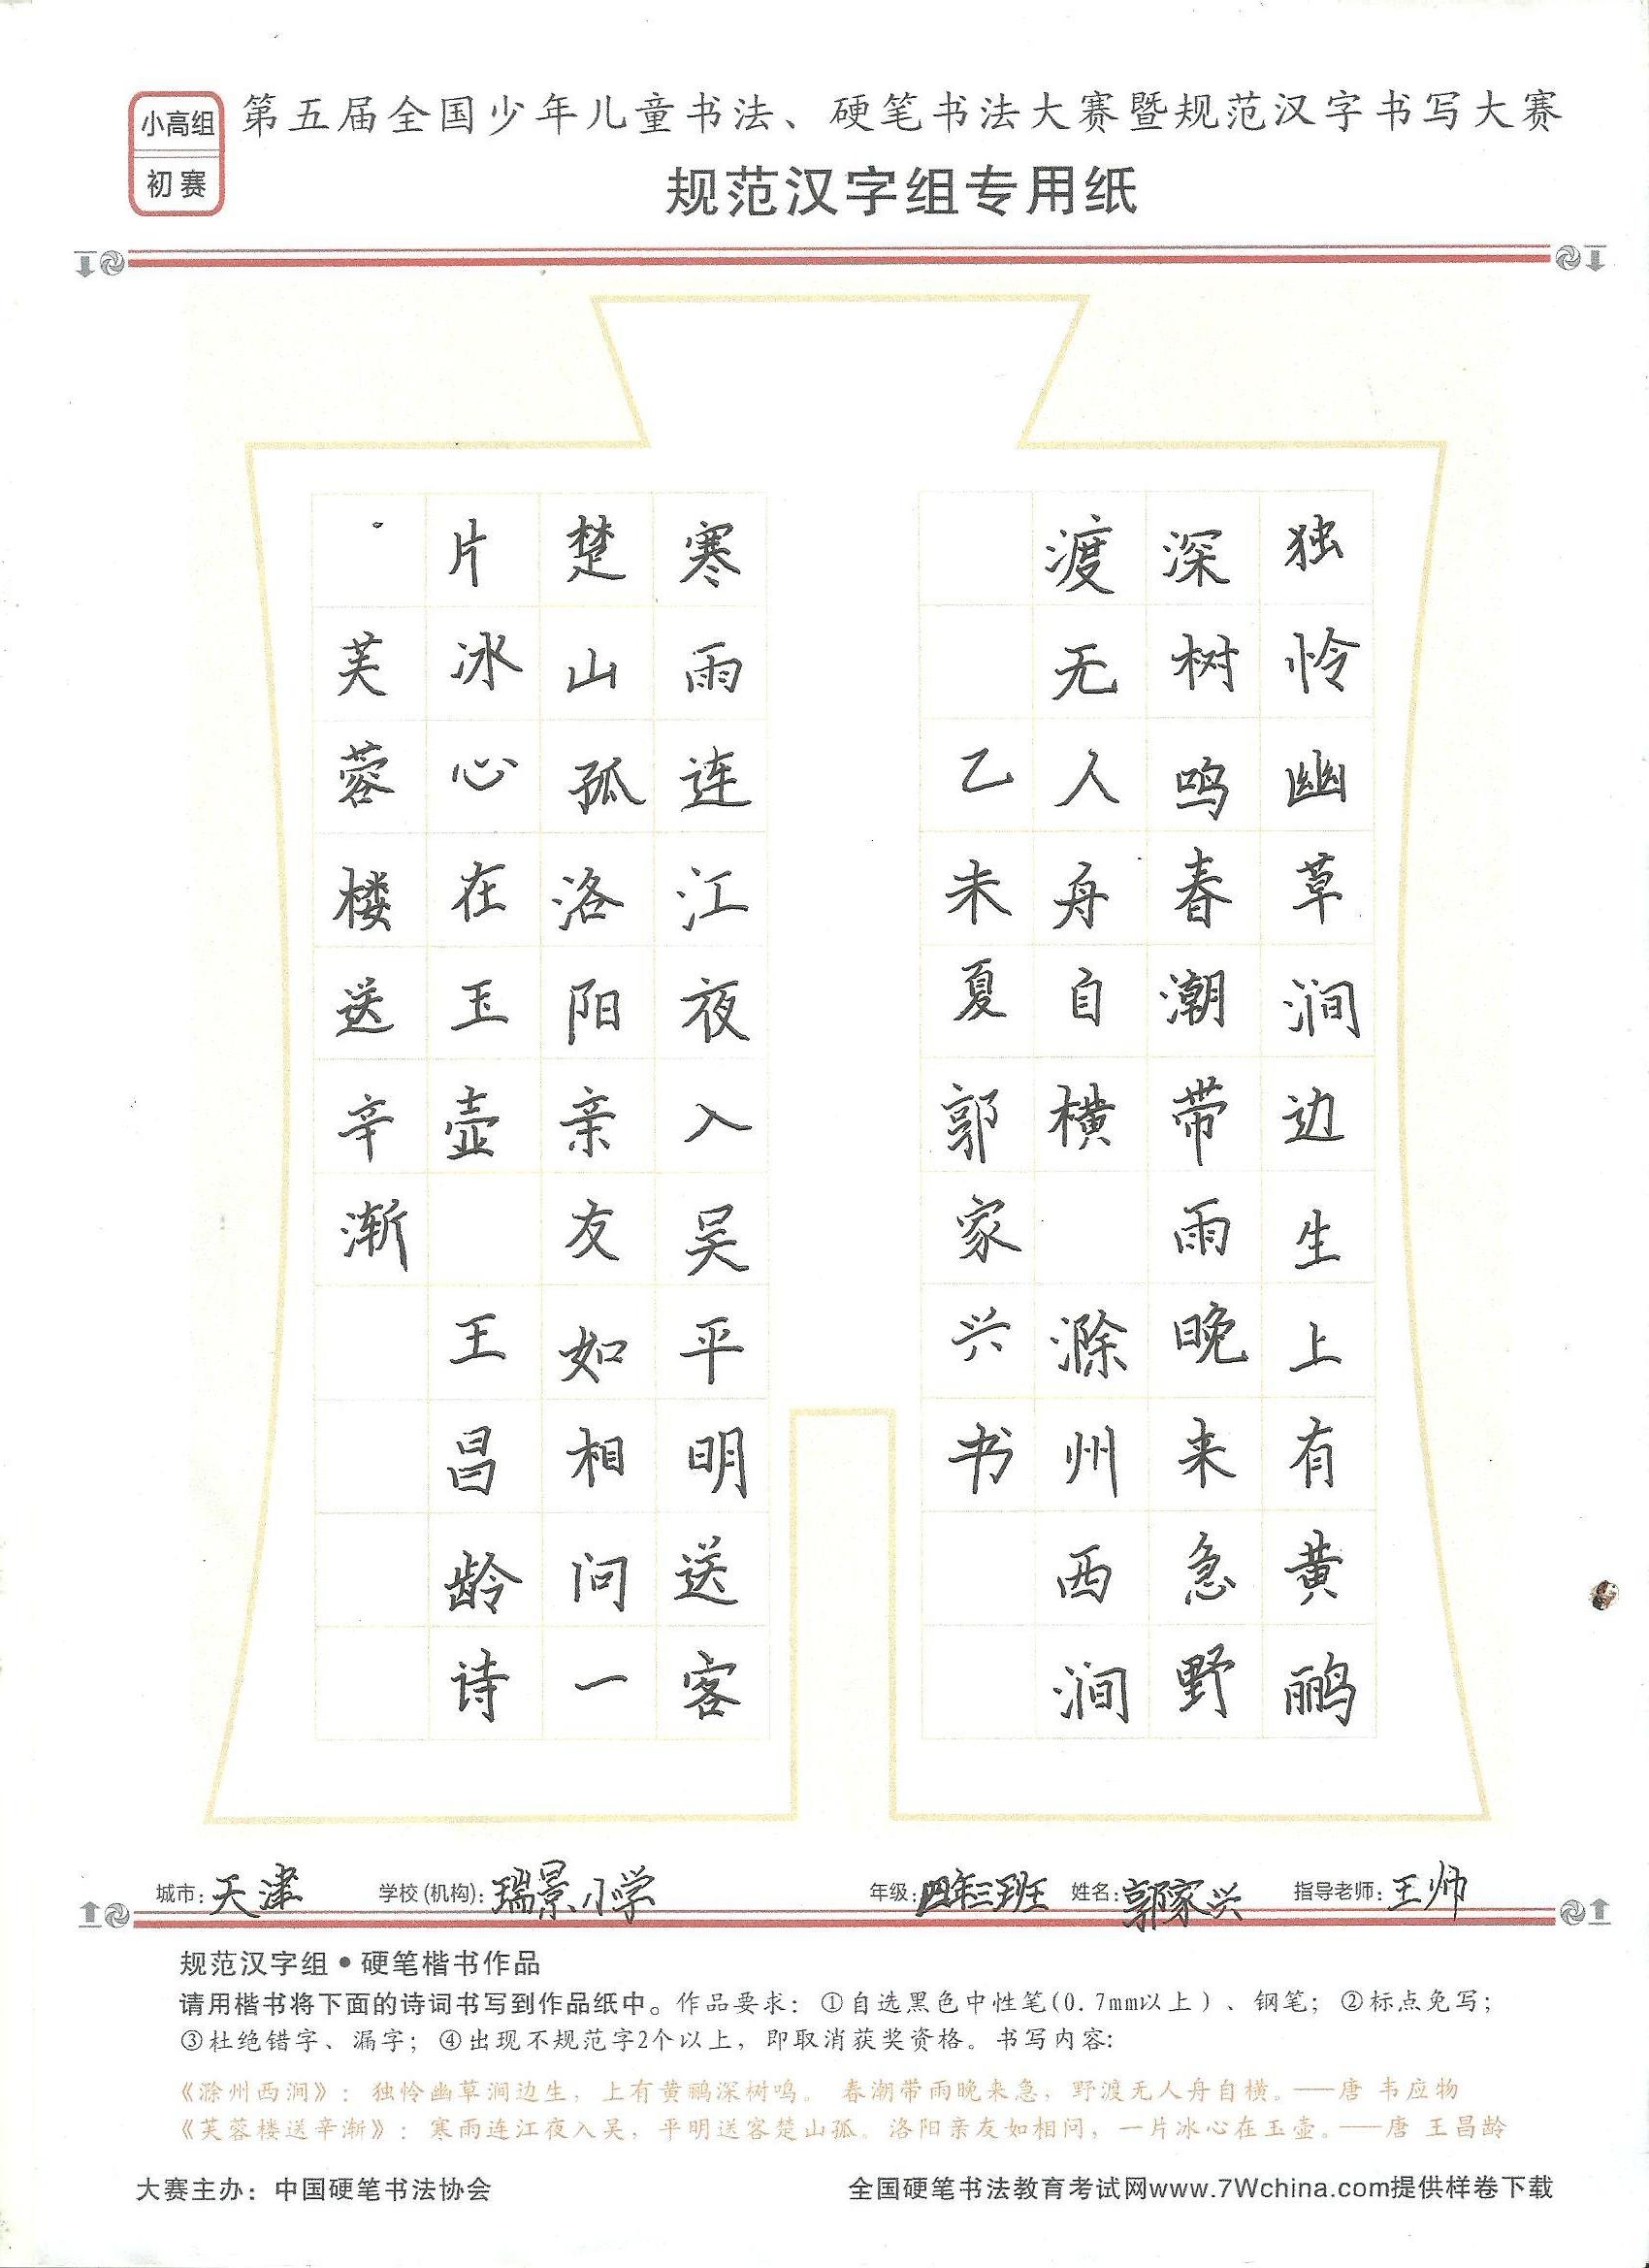 小高组
初赛
第五届全国少年儿童书法、硬笔书法大赛暨规范汉字书写大赛
规范汉字组专用纸
独怜幽草涧边生上有黄鹂
深树鸣春潮带雨晚来急野
渡无人舟自横 滁州西涧
乙未夏郭家兴书
寒雨连江夜入吴平明送客
楚山孤洛阳亲友如相问一
片冰心在玉壶 王昌龄诗
芙蓉楼送辛渐
城市：天津 学校(机构)：瑞景小学 年级：四年三班 姓名：郭家兴 指导老师：王帅
规范汉字组•硬笔楷书作品
请用楷书将下面的诗词书写到作品纸中。作品要求：①自选黑色中性笔(0.7mm以上）、钢笔；②标点免写；
③杜绝错字、漏字；④出现不规范字2个以上，即取消获奖资格。书写内容:
《滁州西涧》：独怜幽草涧边生，上有黄鹂深树鸣。春潮带雨晚来急，野渡无人舟自横。——唐 韦应物
《芙蓉楼送辛渐》：寒雨连江夜入吴，平明送客楚山孤。洛阳亲友如相问，一片冰心在玉壶。——唐 王昌龄
大赛主办：中国硬笔书法协会 全国硬笔书法教育考试网www.7Wchina.com提供样卷下载